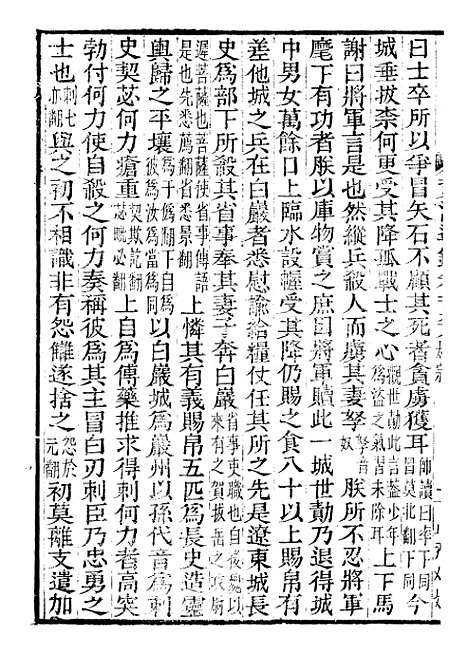 曰士卒所以爭冒矢石不顧其死者貪虜獲耳帥讀曰率下同冒莫北翻下同今
城垂拔柰何更受其降孤戰士之心觀世勣此言蓋少年爲盜之氣習未除耳上下馬
謝曰將軍言是也然縱兵殺人而虜其妻孥孥音奴朕所不忍將軍
麾下有功者朕以庫物賞之庶因將軍贖此一城世勣乃退得城
中男女萬餘口上臨水設幄受其降仍賜之食八十以上賜帛有
差他城之兵在白巖者悉慰諭給糧仗任其所之先是遼東城長
史爲部下所殺其省事奉其妻子奔白巖省事吏職也以來有之賀拔岳之敗尉
遲菩薩也菩薩使省事傳語是也先悉薦翻省悉景翻上憐其有義賜帛五匹爲長史造靈
輿歸之平壤爲于僞翻下自爲彼爲汝爲當爲同以白巖城爲巖州以孫代音爲刺
史契苾何力瘡重契欺訖翻苾毗必翻上自爲傅藥推求得刺何力者高突
勃付何力使自殺之何力奏稱彼爲其主冒白刃刺臣乃忠勇之
士也刺七亦翻與之初不相識非有怨讎遂捨之怨於元翻初莫離支遣加